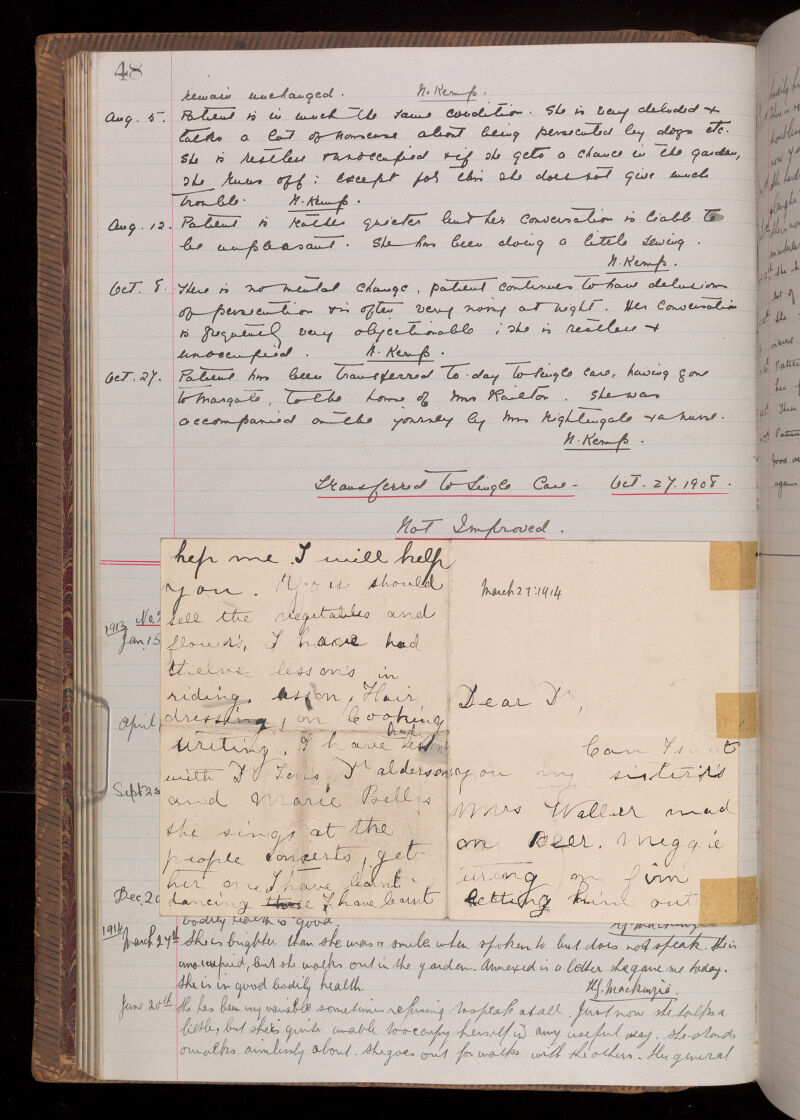 48
remain unchanged. N. Kemp.
Aug. 5. Patient is in much the same condition. She is very deluded &
talks a lot of nonsense about being persecuted by dogs etc.
She is restless & unoccupied & if she gets a chance in the garden,
she runs off: except for this she does not give much
trouble. N. Kemp.
Aug. 12. Patient is rather quieter but her conversation is liable to
be unpleasant. She has been doing a little sewing.
N. Kemp.
Oct. 8. There is no mental change, patient continues to have delusions
of persecution & is often very noisy at night. Her conversation
is frequently very objectionable; she is restless &
unoccupied. N. Kemp.
Oct. 27. Patient has been transferred to-day to Single care, having gone
to Margate, to the home of Mrs Railton. She was
accompanied on the journey by Mrs Nightingale & a nurse.
N. Kemp.
Transferred to Single Care - Oct. 27. 1908.
Not Improved.
hep me. I will help
you. You should
sell the vegetables and
flowers, I have had
twelve lessons in
riding, Hair
dressing, on Cooking
writing. I have had
with Dr Dr alderson
and Marie Bellis
she sings at the
people concerts, get
her on, I have learnt
dancing I have learnt
March 27: 1914
Dear Dr,
Can I
you my sister's
Mrs Waller mad
on Beer. Meggie
wrong on
letting him out
1913
Jan. 15
April
Sept 23
Dec. 20
bodily health is good.
1914
March 27th She is brighter than she was & smiles when spoken to but does not speak. She is
unoccupied, but she walks out in the garden. Annexed is a letter she gave me today.
She is in good bodily health. H.J. Mackenzie.
June 20th She has been very variable sometimes refusing to speak at all. Just now she talks a
little, but she is quite unable to occupy herself in any useful way. She stands
or walks aimlessly about. She goes out for walks with the others. Her general